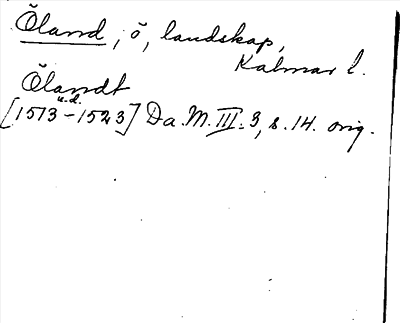 Öland, ö, landskap,
Kalmar l.
Ölandt
u.d.
[1513-1523] Da.M.III.3, s.14. orig.